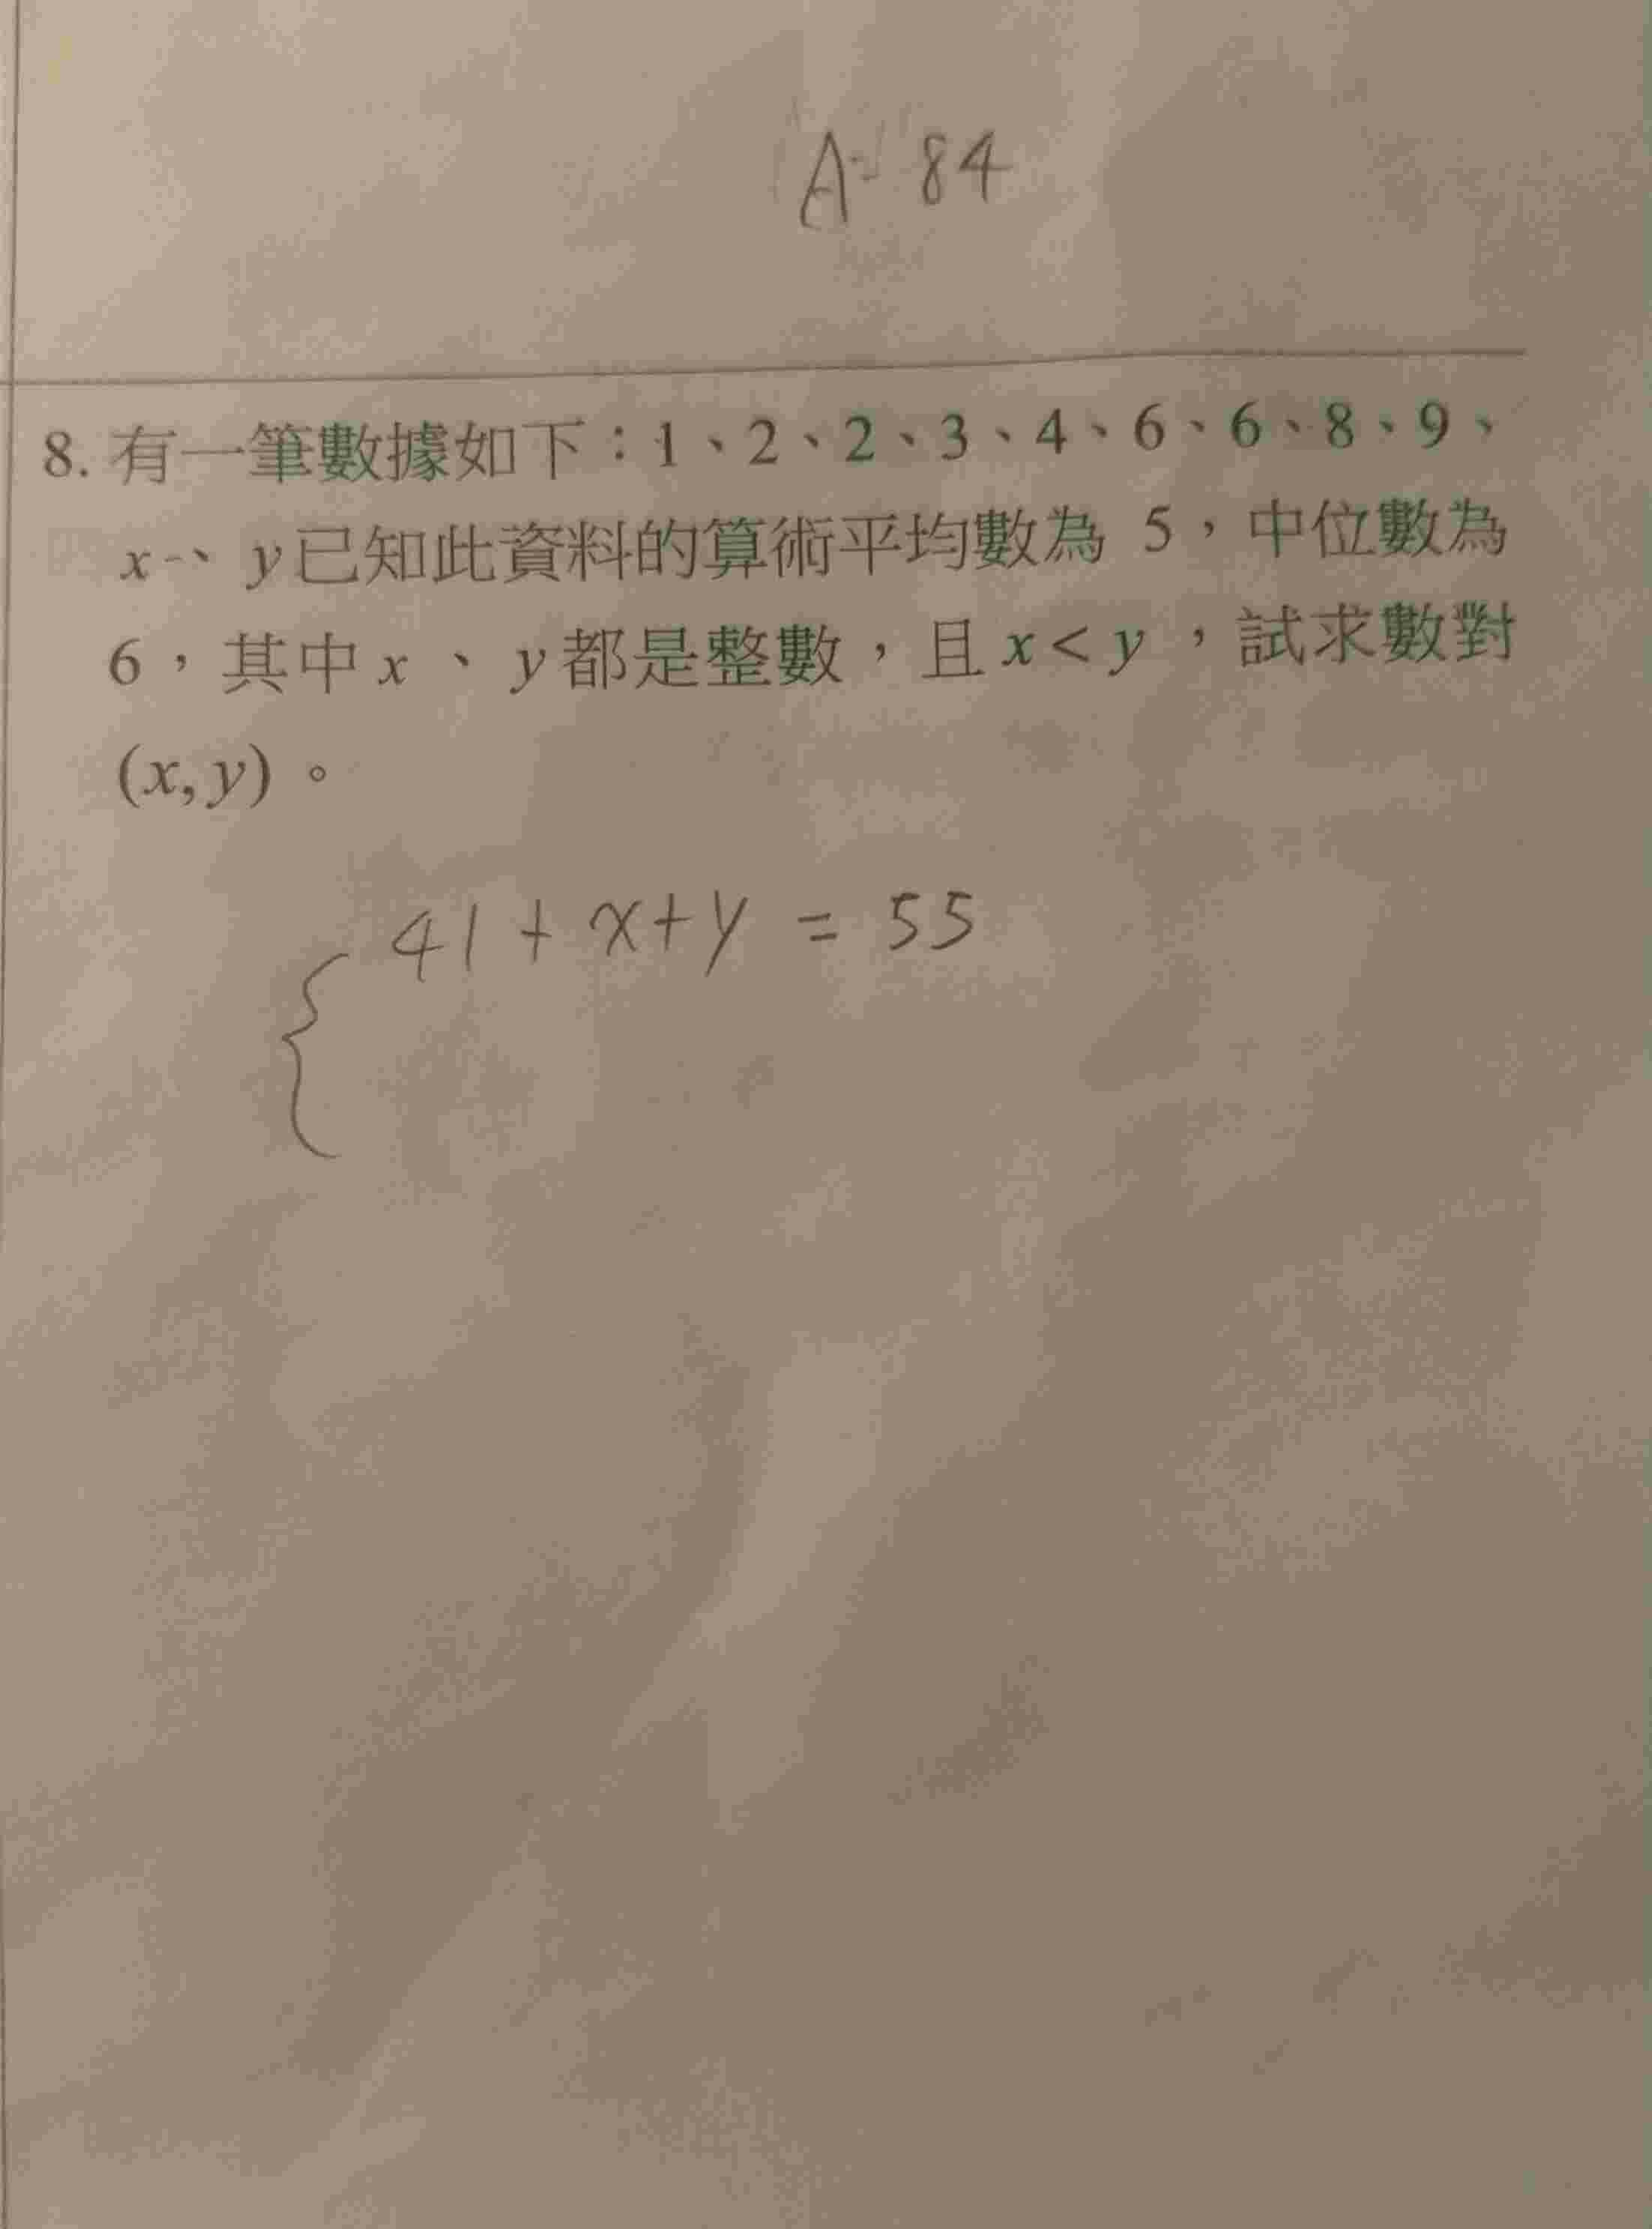 A= 84
8. 有一筆數據如下：1、2、2、3、4、6、6、8、9、
x、y已知此資料的算術平均數為 5，中位數為
6，其中 x 、 y 都是整數，且 x < y ，試求數對
(x, y) 。
41 + x + y = 55